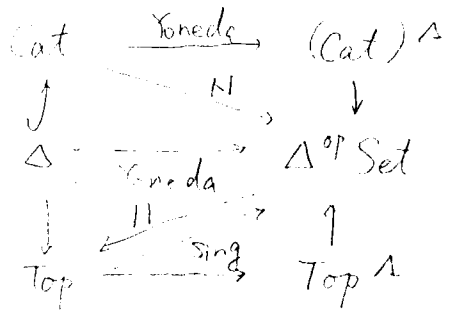 Cat Yoneda (Cat)^
N
Δ Yoneda Δ^op Set
| |
Sing
Top Top^